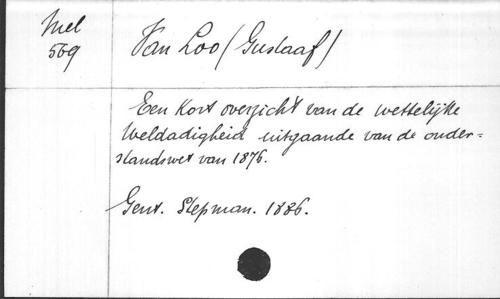 Mel
569
Van Loo (Gustaaf)
Een Kort overzicht van de wettelijke
Weldadigheid uitgaande van de onder=
standswet van 1876.
Gent. Stepman. 1886.